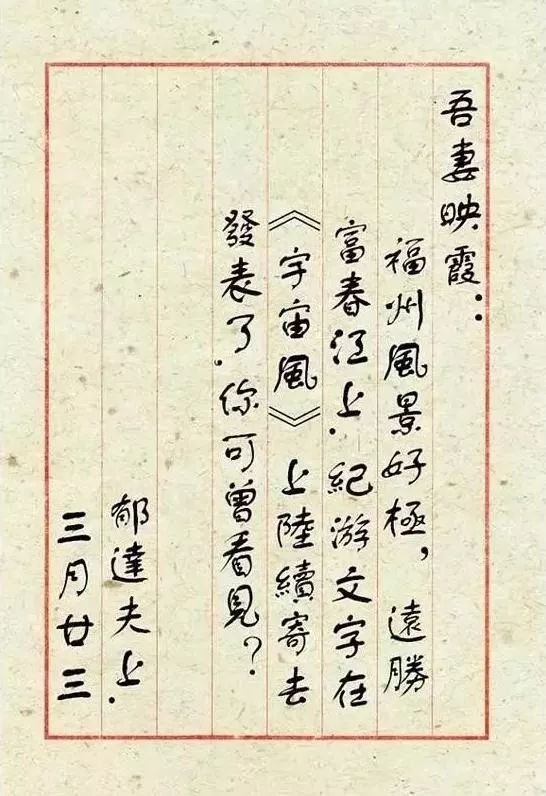 吾妻映霞：
福州風景好極，遠勝
富春江上.紀游文字在
《宇宙風》上陸續寄去
發表了.你可曾看見？
郁達夫上.
三月廿三